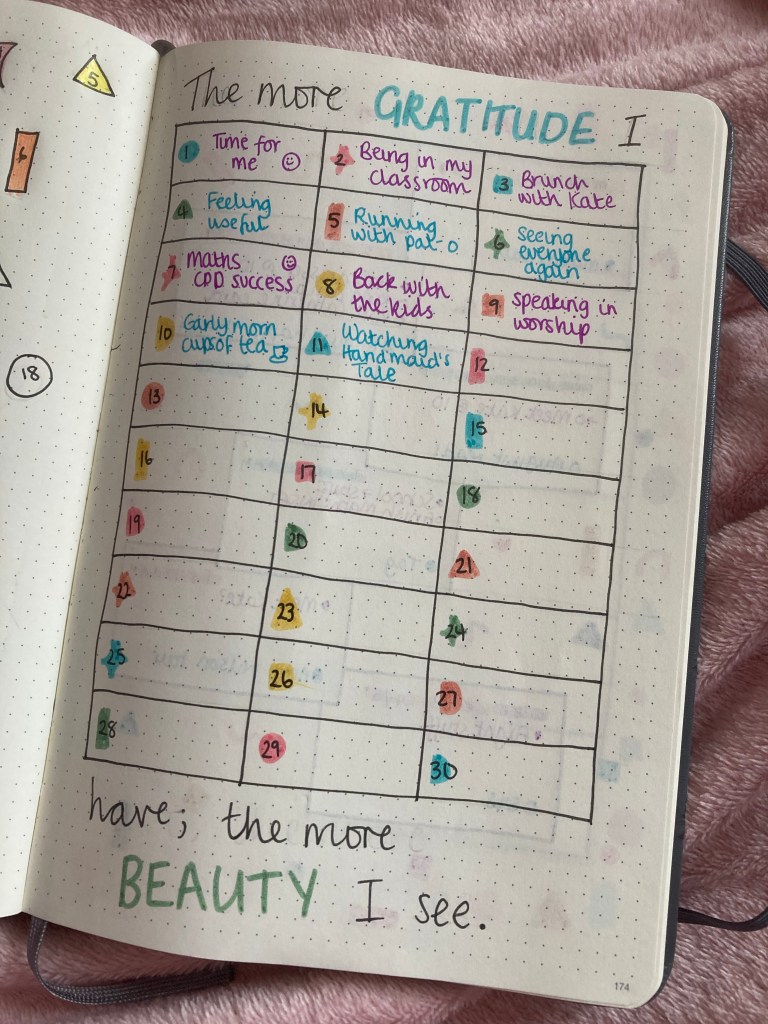 5
6
18
The more GRATITUDE I
1 Time for
me
2 Being in my
classroom
3 Brunch
with Kate
4 Feeling
useful
5 Running
with pat-o
6 seeing
everyone
again
7 maths
CPD success
8 Back with
the kids
9 speaking in
worship
10 Girly mom
cups of tea
11 Watching
Handmaid's
Tale
12
13
14
15
16
17
18
19
20
21
22
23
24
25
26
27
28
29
30
have; the more
BEAUTY I see.
174